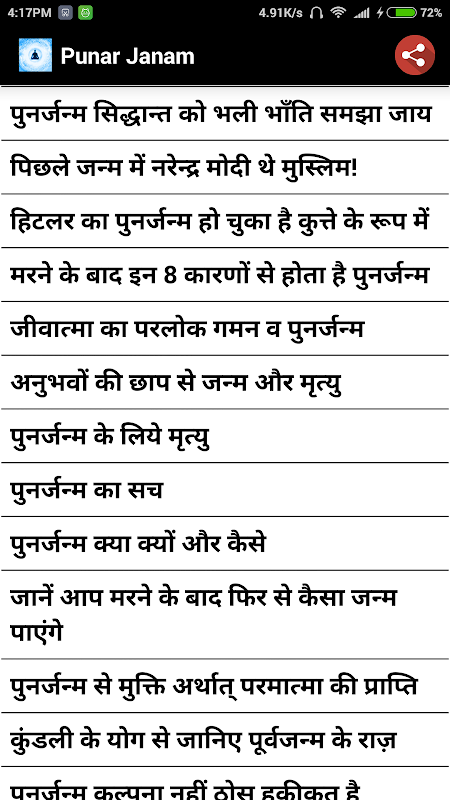 4:17PM 4.91K/s 72%
Punar Janam
पुनर्जन्म सिद्धान्त को भली भाँति समझा जाय
पिछले जन्म में नरेन्द्र मोदी थे मुस्लिम!
हिटलर का पुनर्जन्म हो चुका है कुत्ते के रूप में
मरने के बाद इन 8 कारणों से होता है पुनर्जन्म
जीवात्मा का परलोक गमन व पुनर्जन्म
अनुभवों की छाप से जन्म और मृत्यु
पुनर्जन्म के लिये मृत्यु
पुनर्जन्म का सच
पुनर्जन्म क्या क्यों और कैसे
जानें आप मरने के बाद फिर से कैसा जन्म
पाएंगे
पुनर्जन्म से मुक्ति अर्थात् परमात्मा की प्राप्ति
कुंडली के योग से जानिए पूर्वजन्म के राज़
पुनर्जन्म कल्पना नहीं ठोस हकीकत है